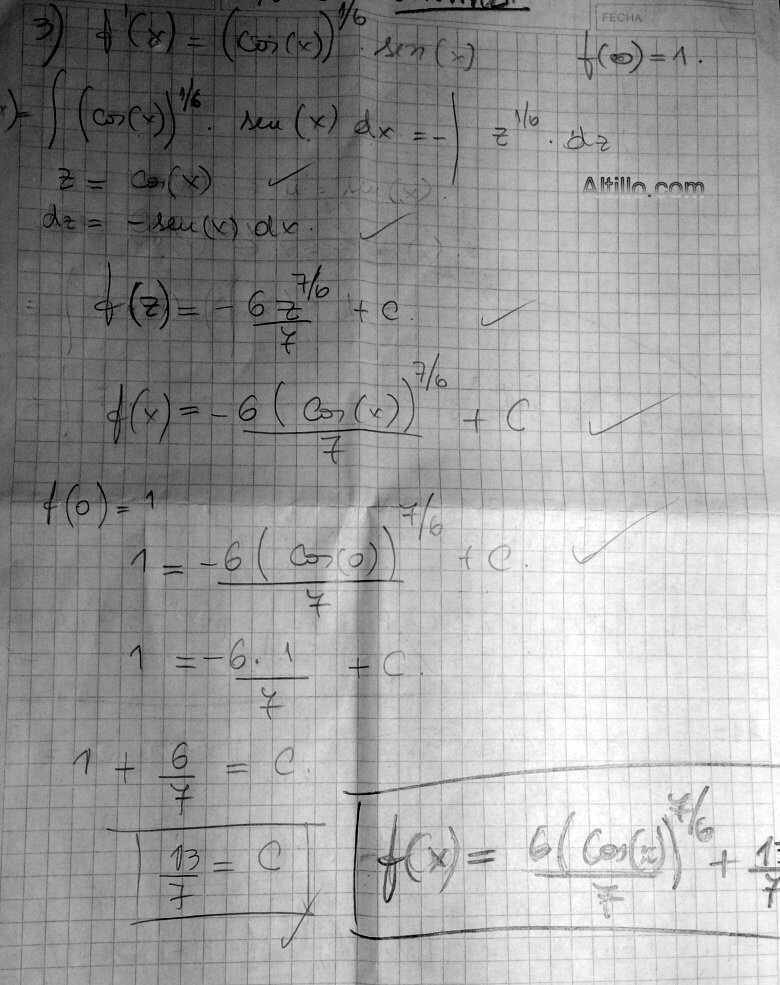 FECHA
3) f'(x) = (cos(x))^1/6 . sen(x) f(0) = 1.
x) = ∫ (cos(x))^1/6 . sen(x) dx = -∫ z^1/6 . dz
z = cos(x) ✓
Altillo.com
dz = -sen(x) dx. ✓
f(z) = - 6 z^7/6 / 7 + C. ✓
f(x) = - 6 (cos(x))^7/6 / 7 + C ✓
f(0) = 1
1 = - 6 (cos(0))^7/6 / 7 + C. ✓
1 = - 6 . 1 / 7 + C.
1 + 6/7 = C.
13/7 = C ✓
f(x) = 6 (cos(x))^7/6 / 7 + 13/7